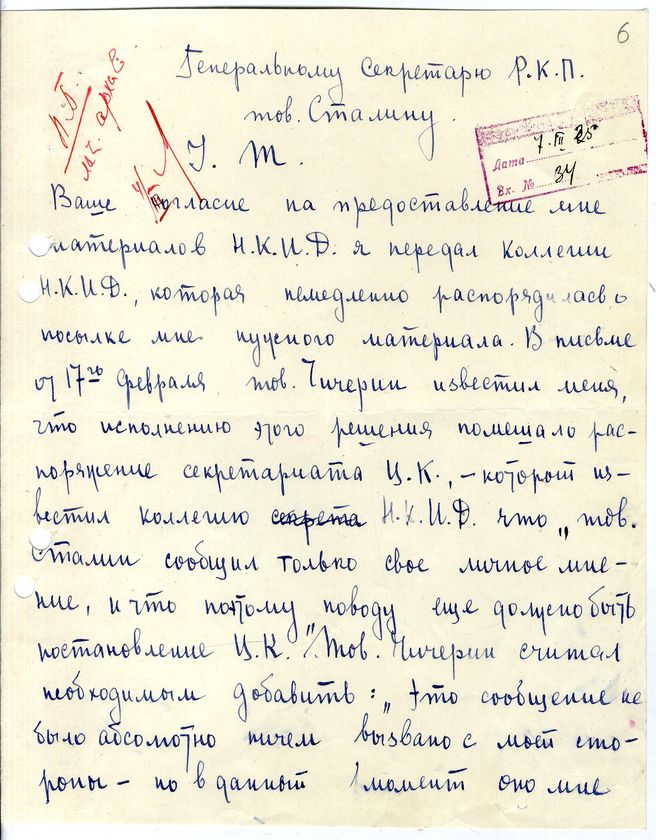 6
Генеральному Секретарю Р.К.П.
тов. Сталину.
У. Т.
Дата 7. III 25
Вх. № 34
Ваше согласие на предоставление мне
материалов Н.К.И.Д. я передал коллегии
Н.К.И.Д., которая немедленно распорядилась о
посылке мне нужного материала. В письме
от 17го февраля тов. Чичерин известил меня,
что исполнению этого решения помешало рас-
поряжение секретариата Ц.К., – который из-
вестил коллегию секрета Н.К.И.Д. что „тов.
Сталин сообщил только свое личное мне-
ние, и что поэтому поводу еще должно быть
постановление Ц.К.". Тов. Чичерин считал
необходимым добавить: „Это сообщение не
было абсолютно ничем вызвано с моей сто-
роны – но в данный момент оно мне